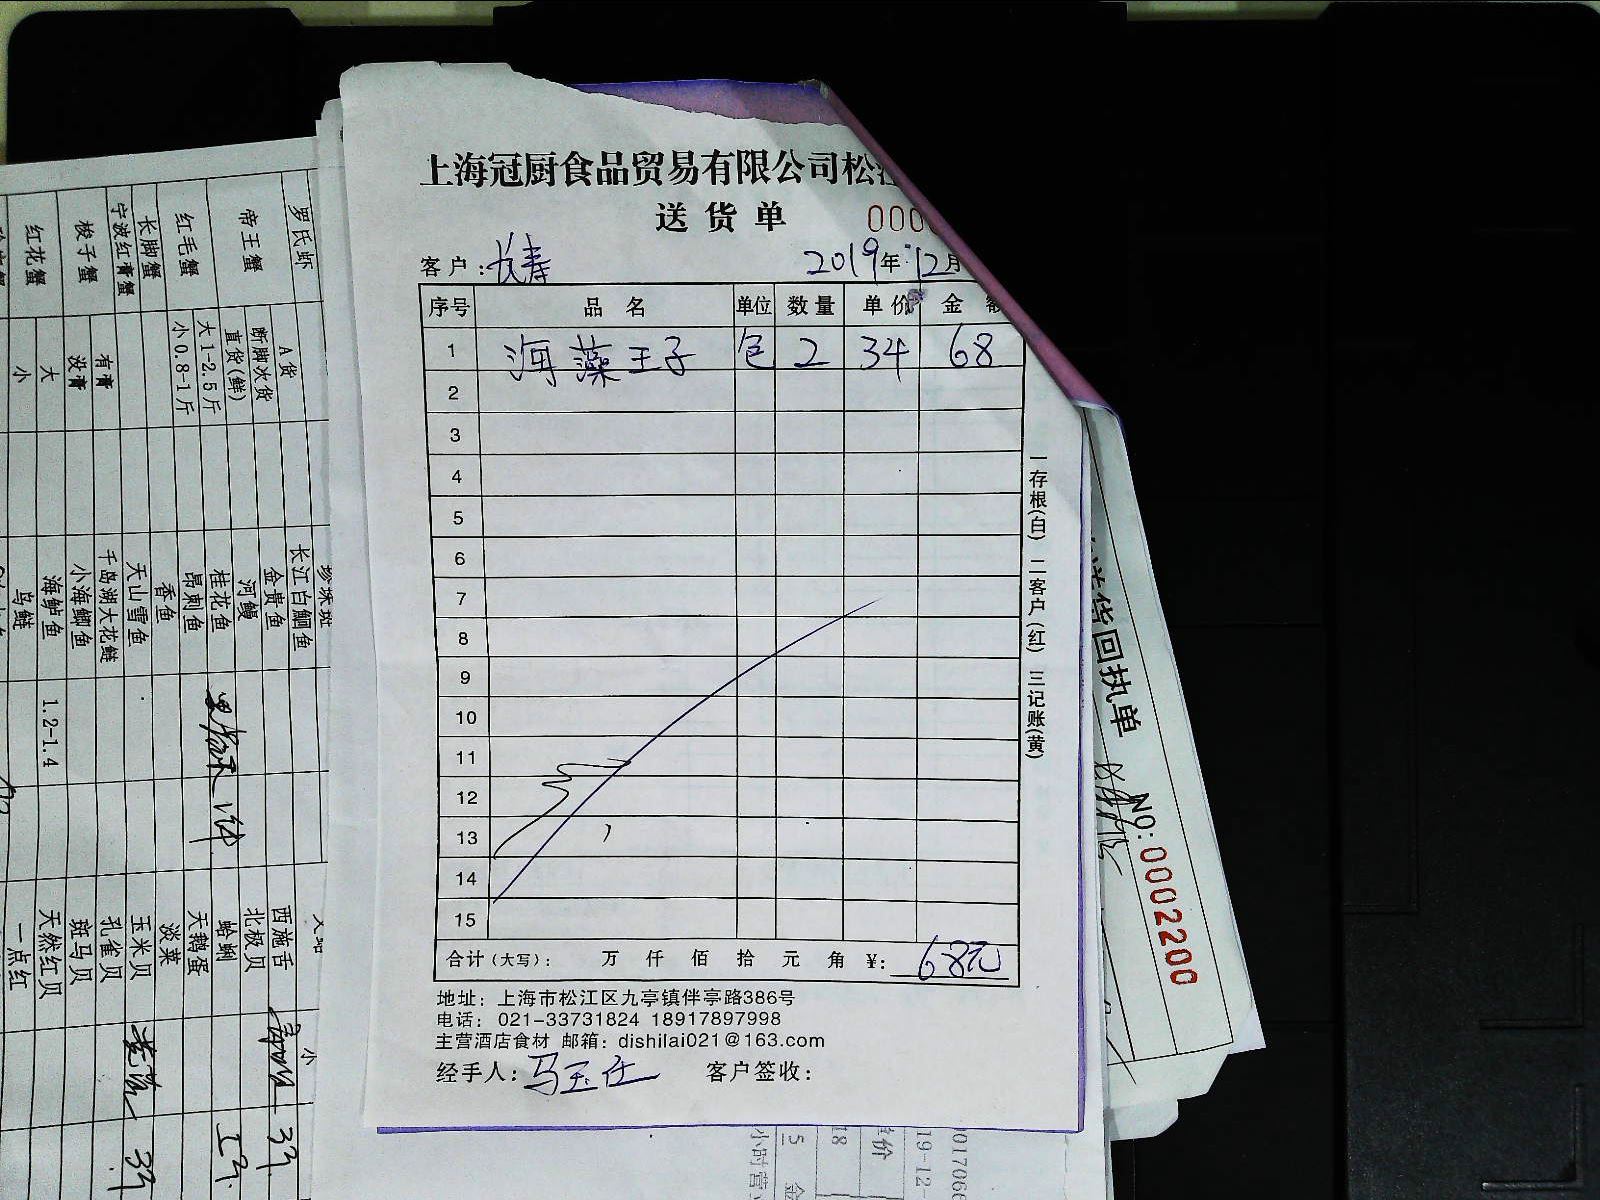 上海冠厨食品贸易有限公司松江
送货单 000
客户：长寿 2019年12月
序号 品名 单位 数量 单价 金额
1 海藻王子 包 2 34 68
2
3
4
5
6
7
8
9
10
11
12
13
14
15
合计（大写）： 万 仟 佰 拾 元 角 ¥： 68元
一存根(白) 二客户(红) 三记账(黄)
地址：上海市松江区九亭镇伴亭路386号
电话：021-33731824 18917897998
主营酒店食材 邮箱：dishilai021@163.com
经手人： 客户签收：
送货回执单
NO:0002200
罗氏虾
帝王蟹
红毛蟹
长脚蟹
宁波红膏蟹
梭子蟹
红花蟹
A货
断脚次货
直货(鲜)
大1-2.5斤
小0.8-1斤
有膏
没膏
大
小
珍珠斑
长江白鮰鱼
金贵鱼
河鳗
桂花鱼
昂刺鱼
香鱼
天山雪鱼
千岛湖大花鲢
小海鲫鱼
海鲈鱼
乌鲢
1.2-1.4
西施舌
北极贝
蛤蜊
天鹅蛋
淡菜
玉米贝
孔雀贝
斑马贝
天然红贝
一点红
小